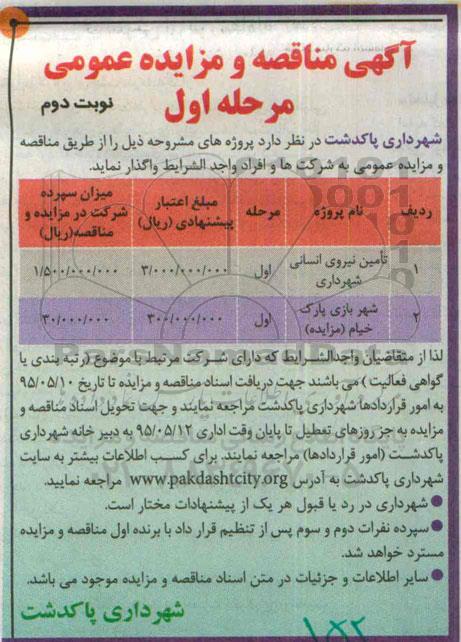 آگهی مناقصه و مزایده عمومی
مرحله اول
نوبت دوم
شهرداری پاکدشت در نظر دارد پروژه های مشروحه ذیل را از طریق مناقصه
و مزایده عمومی به شرکت ها و افراد واجد الشرایط واگذار نماید.
ردیف نام پروژه مرحله مبلغ اعتبار پیشنهادی (ریال) میزان سپرده شرکت در مزایده و مناقصه(ریال)
۱ تأمین نیروی انسانی شهرداری اول ۳/۰۰۰/۰۰۰/۰۰۰ ۱/۵۰۰/۰۰۰/۰۰۰
۲ شهر بازی پارک خیام (مزایده) اول ۳۰۰/۰۰۰/۰۰۰ ۳۰/۰۰۰/۰۰۰
لذا از متقاضیان واجدالشرایط که دارای شرکت مرتبط با موضوع (رتبه بندی یا
گواهی فعالیت) می باشند جهت دریافت اسناد مناقصه و مزایده تا تاریخ ۹۵/۰۵/۱۰
به امور قراردادها شهرداری پاکدشت مراجعه نمایند و جهت تحویل اسناد مناقصه و
مزایده به جز روزهای تعطیل تا پایان وقت اداری ۹۵/۰۵/۱۲ به دبیر خانه شهرداری
پاکدشت (امور قراردادها) مراجعه نمایند. برای کسب اطلاعات بیشتر به سایت
شهرداری پاکدشت به آدرس www.pakdashtcity.org مراجعه نمایید.
● شهرداری در رد یا قبول هر یک از پیشنهادات مختار است.
● سپرده نفرات دوم و سوم پس از تنظیم قرار داد با برنده اول مناقصه و مزایده
مسترد خواهد شد.
● سایر اطلاعات و جزئیات در متن اسناد مناقصه و مزایده موجود می باشد.
شهرداری پاکدشت